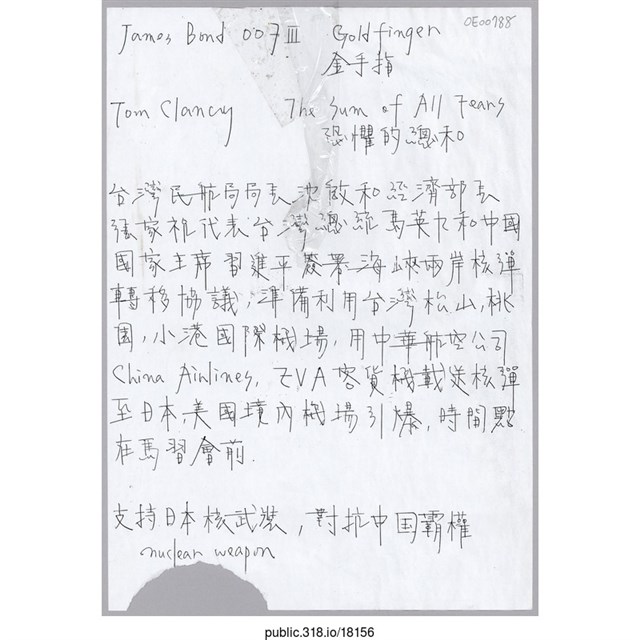 OE00788
James Bond 007 III Goldfinger
金手指
Tom Clancy The Sum of All Fears
恐懼的總和
台灣民航局局長沈啟和經濟部長
張家祝代表台灣總統馬英九和中國
國家主席習進平簽署海峽兩岸核彈
轉移協議,準備利用台灣松山,桃
園,小港國際機場,用中華航空公司
China Airlines, EVA 客貨機載送核彈
至日本,美國境內機場引爆,時間點
在馬習會前.
支持日本核武裝,對抗中国霸權
nuclear weapon
public.318.io/18156